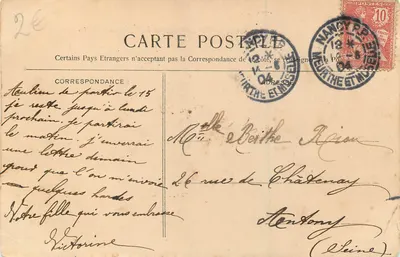 2€
CARTE POSTALE
Certains Pays Etrangers n'acceptent pas la Correspondance de
CORRESPONDANCE
NANCY
14
04
MEURTHE ET MOSELLE
NANCY
12
04
MEURTHE ET MOSELLE
10
Au lieu de partir le 15
je reste jusqu'à lundi
prochain, je partirai
le matin j'enverrai
une lettre demain
pour que l'on m'envoie
quelques hardes
Votre fille qui vous embrasse
Victorine
Melle Berthe
26 rue de Châtenay
Antony
(Seine)